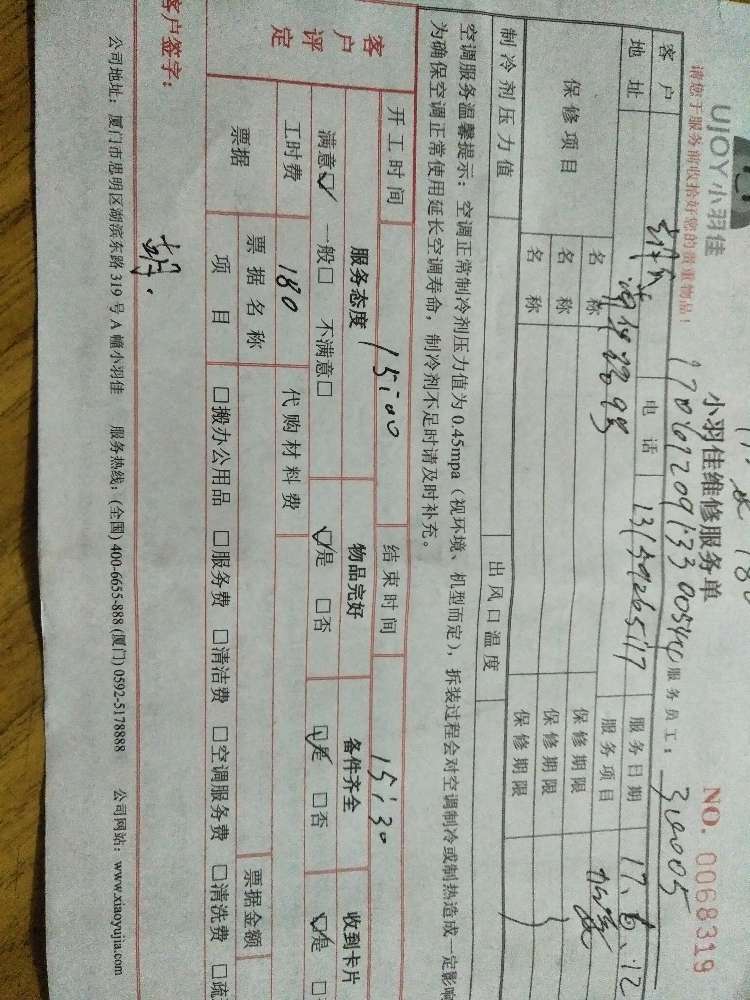 UJOY小羽佳
小羽佳维修服务单
NO. 0068319
请您于服务前收拾好您的贵重物品！
服务员工：
客户
电话 13159265117 服务日期 17、6、12
地址
服务项目
保修项目
名称 保修期限
名称 保修期限
名称 保修期限
制冷剂压力值 出风口温度
空调服务温馨提示：空调正常制冷剂压力值为 0.45mpa（视环境、机型而定），拆装过程会对空调制冷或制热造成一定影响
为确保空调正常使用延长空调寿命，制冷剂不足时请及时补充。
开工时间 15:00 结束时间 15:30
客户评定
服务态度 物品完好 备件齐全 收到卡片
满意☑ 一般□ 不满意□ ☑是 □否 ☑是 □否 ☑是 □
工时费 180 代购材料费
票据 票据名称 票据金额
项目 □搬办公用品 □服务费 □清洁费 □空调服务费 □清洗费 □疏
客户签字：
公司地址：厦门市思明区湖滨东路 319 号 A 幢小羽佳 服务热线：(全国) 400-6655-888 (厦门) 0592-5178888 公司网站：www.xiaoyujia.com